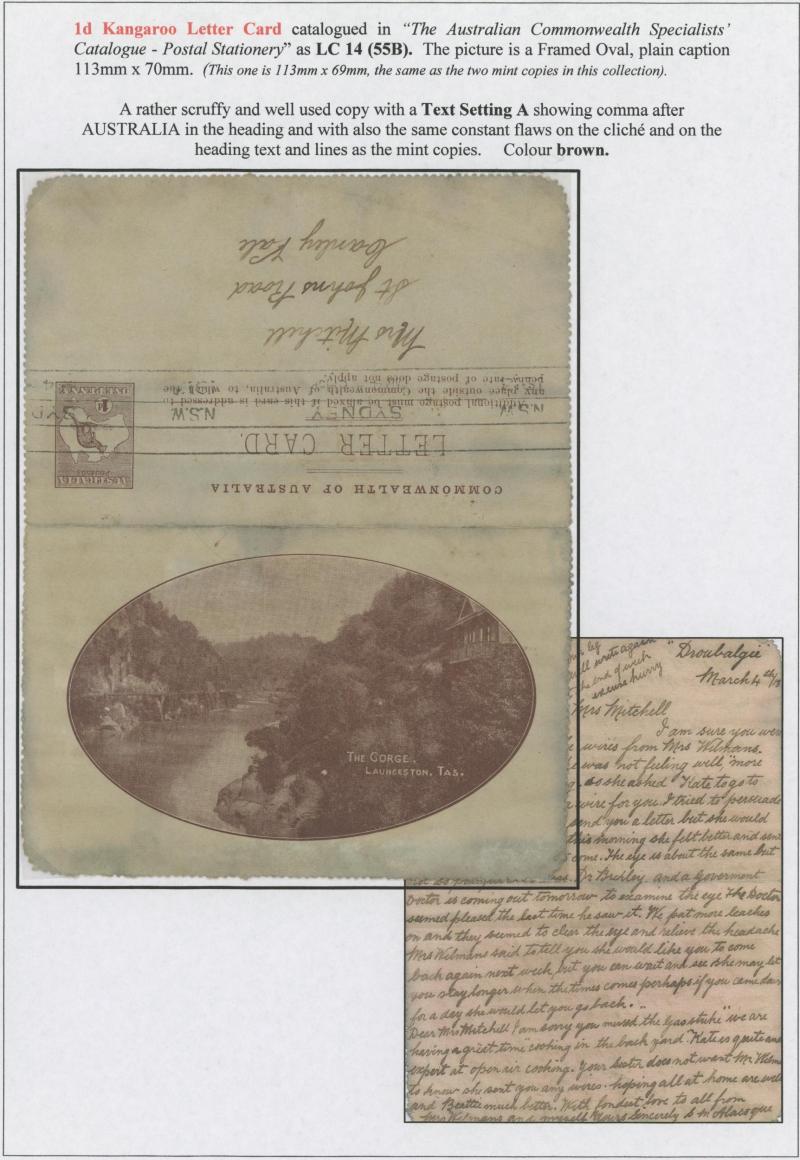 1d Kangaroo Letter Card catalogued in “The Australian Commonwealth Specialists’
Catalogue - Postal Stationery” as LC 14 (55B). The picture is a Framed Oval, plain caption
113mm x 70mm. (This one is 113mm x 69mm, the same as the two mint copies in this collection).
A rather scruffy and well used copy with a Text Setting A showing comma after
AUSTRALIA in the heading and with also the same constant flaws on the cliché and on the
heading text and lines as the mint copies. Colour brown.
COMMONWEALTH OF AUSTRALIA
LETTER CARD.
Additional postage must be affixed if this card is addressed to
any place outside the Commonwealth of Australia, to which the
penny rate of postage does not apply.
AUSTRALIA
POSTAGE
1d
ONE PENNY
N.S.W.
SYDNEY
N.S.W.
SYD
Mrs Mitchell
St Johns Road
Canley Vale
THE GORGE.
LAUNCESTON, TAS.
will write again
the end of week
excuse hurry
"Droubalgie"
March 4th
Mrs Mitchell
I am sure you were
wires from Mrs Wilmans.
he was not feeling well, "more
so she asked Kate to go to
a wire for you. I tried to persuade
send you a letter but she would
this morning she felt better and sent
come. The eye is about the same but
Dr Buckley and a Goverment
Doctor is coming out tomorrow to examine the eye The Doctor
seemed pleased the last time he saw it. We put more leaches
on and they seemed to clear the eye and relieve the headache
Mrs Wilmans said to tell you she would like you to come
back again next week, but you can wait and see she may let
you stay longer when the times comes perhaps if you came down
for a day she would let you go back.
Dear Mrs Mitchell I am sorry you missed the "gas strike" we are
having a great time cooking in the back yard "Kate is quite an
expert at open air cooking. Your sister does not want Mr Wilmans
to know she sent you any wires. hoping all at home are well
and Beattie much better. With fondest love to all from
Mrs Wilmans and myself Yours Sincerely